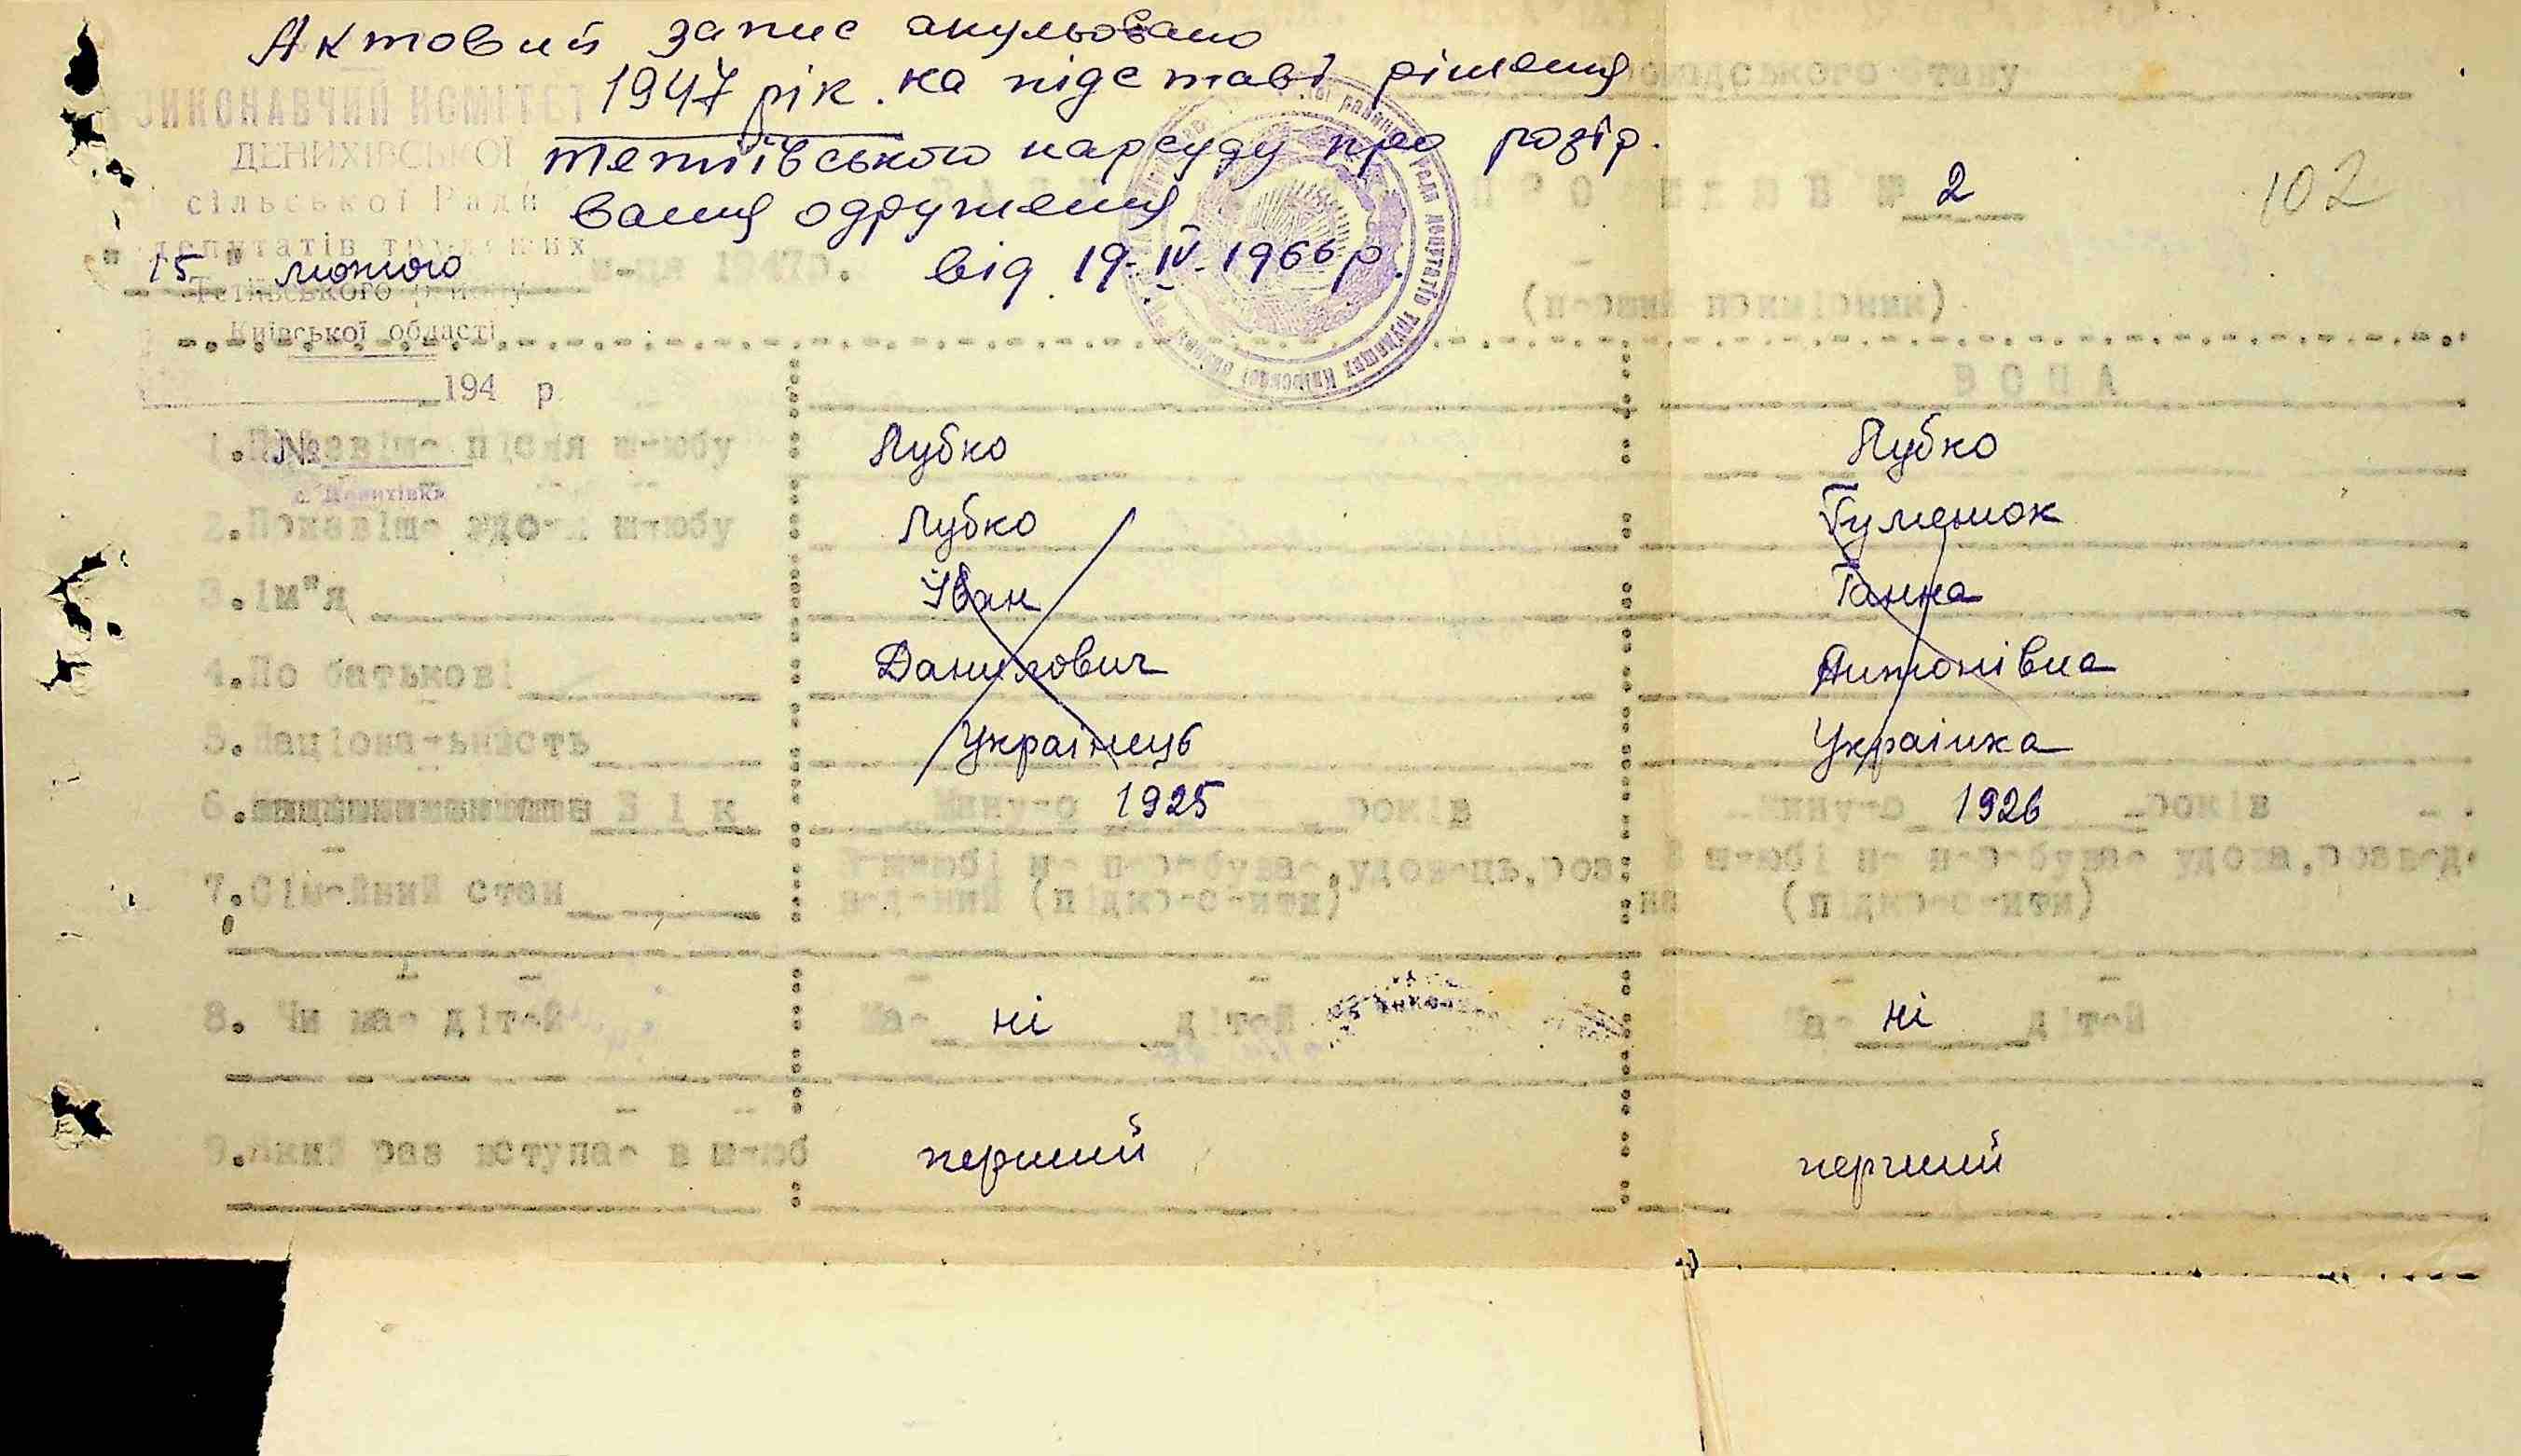 Актовий запис анульовано
1947 рік. на підставі рішення
Тетіївського нарсуду про розір.
вання одруження
від 19-IV-1966 р.
громадського стану
ВИКОНАВЧИЙ КОМІТЕТ
ДЕНИХІВСЬКОЇ
сільської Ради
депутатів трудящих
Тетіївського району
Київської області
194 р.
№
с. Денихівка
ПРО ШЛЮБ № 2
102
"15" лютого м-ця 1947р.
(перший примірник)
ВОНА
1. Прізвище після шлюбу Лубко Лубко
2. Прізвище до шлюбу Лубко Гуменюк
3. Ім"я Іван Ганна
4. По батькові Данилович Антонівна
5. Національність Українець Українка
6. Вік Минуло 1925 років Минуло 1926 років
7. Сімейний стан В шлюбі не перебуває, удовець, роз В шлюбі не перебуває удова, розвед.
ведений (підкреслити) на (підкреслити)
8. Чи має дітей Має ні дітей Має ні дітей
9. Який раз вступає в шлюб перший перший